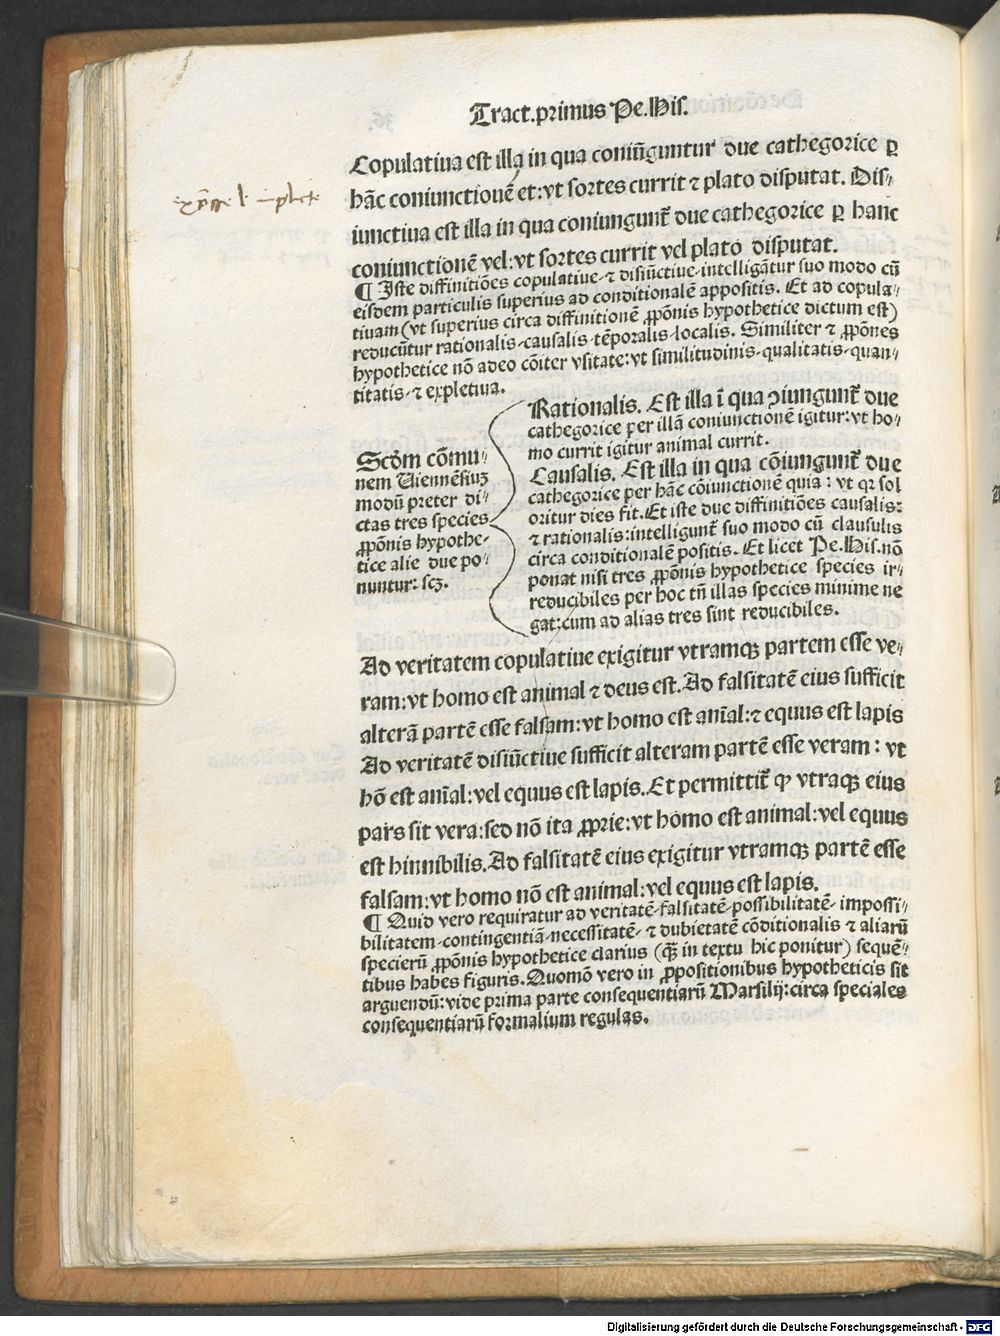 Tract.primus Pe.His.
Copulatiua est illa in qua coniũguntur due cathegorice ꝑ
hãc coniunctiouẽ et:vt sortes currit ⁊ plato disputat. Dis-
iunctiua est illa in qua coniungunt᷑ due cathegorice ꝑ hanc
coniunctionẽ vel:vt sortes currit vel plato disputat.
¶ Iste diffinitiões copulatiue-⁊ disiũctiue-intelligãtur suo modo cũ
eisdem particulis superius ad conditionalẽ appositis. Et ad copula-
tiuam (vt superius circa diffinitionẽ ꝓpõnis hypothetice dictum est)
reducũtur rationalis-causalis-tẽporalis-localis. Similiter ⁊ ꝓpõnes
hypothetice nõ adeo cõiter vsitate:vt similitudinis-qualitatis-quan-
titatis-⁊ expletiua.
Scd̃m cõmu-
nem Viennẽsiuꝫ
modũ preter di-
ctas tres species
ꝓpõnis hypothe-
tice alie due po-
nuntur: scꝫ.
Rationalis. Est illa ĩ qua ꝯiungunt᷑ due
cathegorice per illã coniunctionẽ igitur:vt ho-
mo currit igitur animal currit.
Causalis. Est illa in qua cõiungunt᷑ due
cathegorice per hãc cõiunctionẽ quia: vt qꝛ sol
oritur dies fit. Et iste due diffinitiões causalis:
⁊ rationalis:intelligunt᷑ suo modo cũ clausulis
circa conditionalẽ positis. Et licet Pe.His.nõ
ponat nisi tres ꝓpõnis hypothetice species ir-
reducibiles per hoc tñ illas species minime ne
gat:cum ad alias tres sint reducibiles.
Ad veritatem copulatiue exigitur vtramqꝫ partem esse ve-
ram:vt homo est animal ⁊ deus est. Ad falsitatẽ eius sufficit
alterã partẽ esse falsam:vt homo est anĩal:⁊ equus est lapis
Ad veritatẽ disiũctiue sufficit alteram partẽ esse veram: vt
hõ est anĩal:vel equus est lapis. Et permittit᷑ ꝙ vtraqꝫ eius
pars sit vera:sed nõ ita ꝓprie:vt homo est animal:vel equus
est hinnibilis. Ad falsitatẽ eius exigitur vtramqꝫ partẽ esse
falsam:vt homo nõ est animal:vel equus est lapis.
¶ Quid vero requiratur ad veritatẽ-falsitatẽ-possibilitatẽ-impossi-
bilitatem-contingentiã-necessitatẽ-⁊ dubietatẽ cõditionalis ⁊ aliarũ
specierũ ꝓpõnis hypothetice clarius (q̃ꝫ in textu hic ponitur) sequẽ-
tibus habes figuris. Quomõ vero in ꝓpositionibus hypotheticis sit
arguendũ:vide prima parte consequentiarũ Marsilij:circa speciales
consequentiarũ formalium regulas.
Digitalisierung gefördert durch die Deutsche Forschungsgemeinschaft - DFG